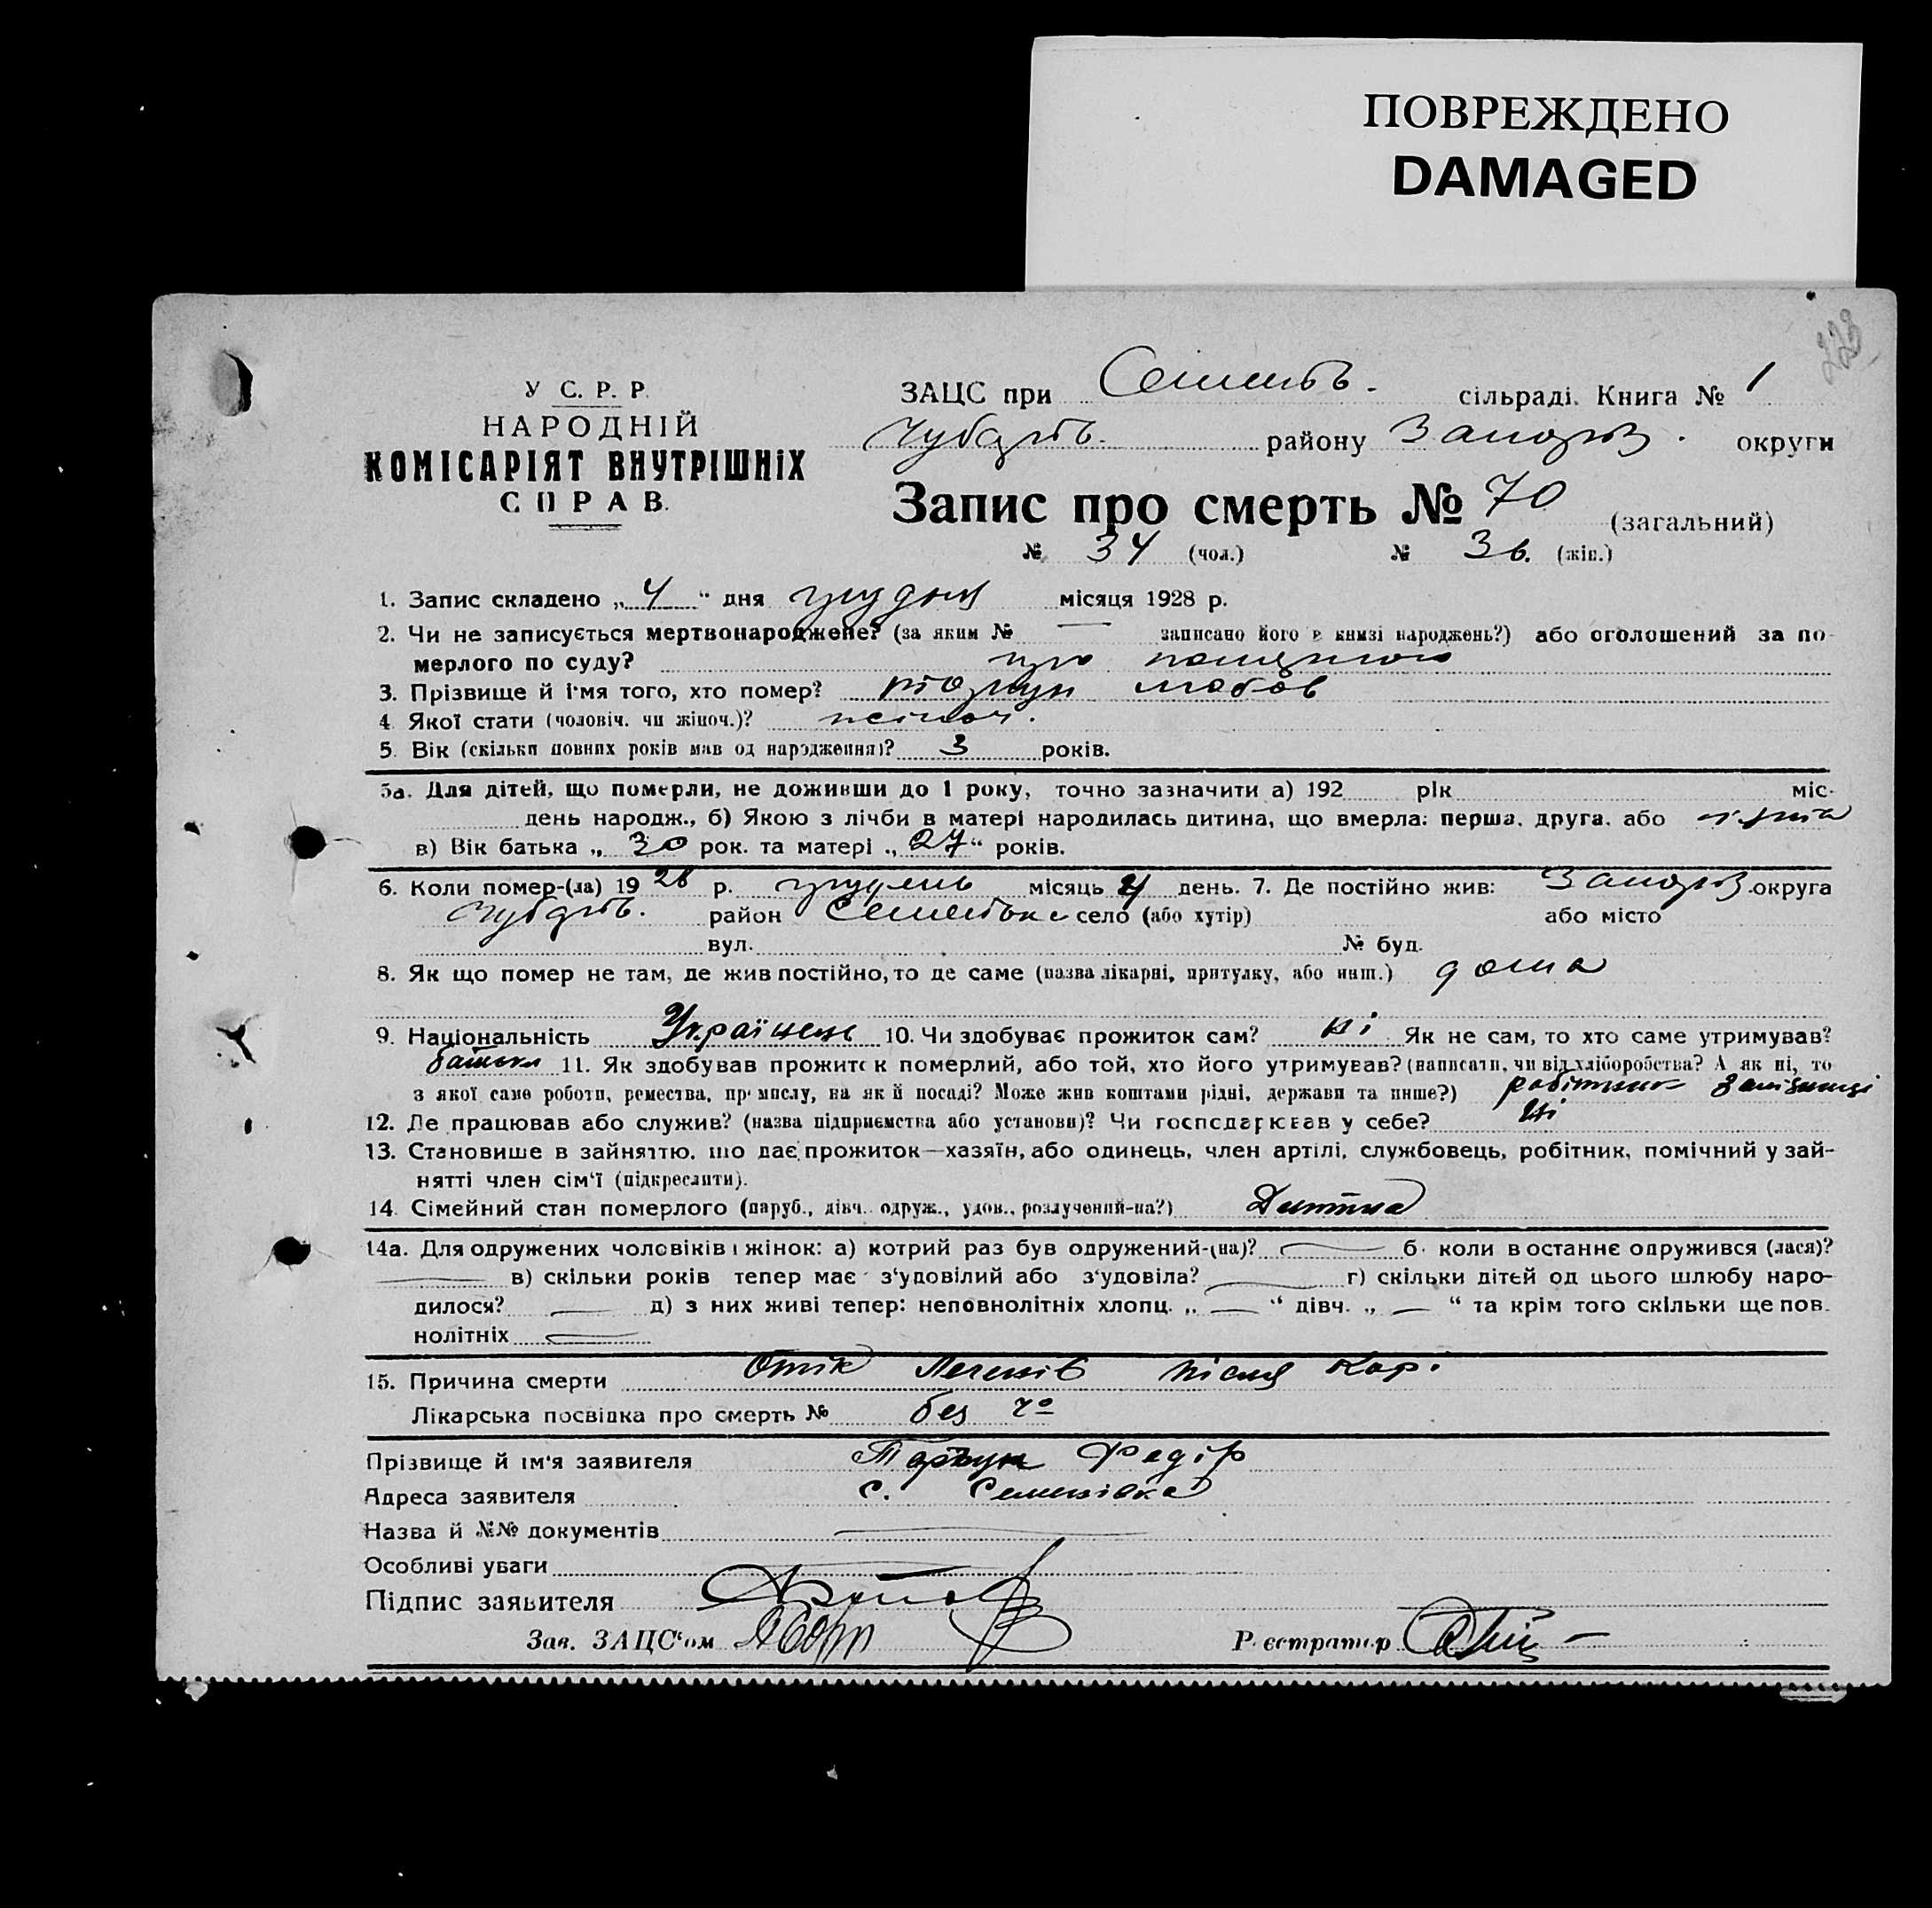 ПОВРЕЖДЕНО
DAMAGED
У С. Р. Р.
НАРОДНІЙ
КОМІСАРІЯТ ВНУТРІШНІХ
СПРАВ.
ЗАЦС при сільраді. Книга № 1
Чубарів. району Запоріз. округи
Запис про смерть № 70 (загальний)
№ 34 (чол.) № 36. (жін.)
1. Запис складено „4“ дня грудня місяця 1928 р.
2. Чи не записується мертвонароджене? (за яким № — записано його в книзі народжень?) або оголошений за по-
мерлого по суду? про
3. Прізвище й ім'я того, хто помер?
4. Якої стати (чоловіч. чи жіноч.)? жіноч.
5. Вік (скільки повних років мав од народження)? 3 років.
5а. Для дітей, що померли, не доживши до 1 року, точно зазначити а) 192 рік міс.
день народж., б) Якою з лічби в матері народилась дитина, що вмерла: перша, друга, або
в) Вік батька „30 рок. та матері „27“ років.
6. Коли помер-(ла) 1928 р. грудень місяць 4 день. 7. Де постійно жив: Запоріз. округа
Чубарів. район Семенівка село (або хутір) або місто
вул. № буд.
8. Як що помер не там, де жив постійно, то де саме (назва лікарні, притулку, або инш.) дома
9. Національність Українець 10. Чи здобуває прожиток сам? ні Як не сам, то хто саме утримував?
батько 11. Як здобував прожиток померлий, або той, хто його утримував? (написати, чи від хліборобства? А як ні, то
з якої саме роботи, ремества, промислу, на якій посаді? Може жив коштами рідні, держави та инше?) робітник залізниці
12. Де працював або служив? (назва підприємства або установи)? Чи господарював у себе? ні
13. Становище в зайняттю, що дає прожиток—хазяїн, або одинець, член артілі, службовець, робітник, помічний у зай-
нятті член сім'ї (підкреслити).
14. Сімейний стан померлого (паруб., дівч. одруж., удов., розлучений-на?) Дитина
14а. Для одружених чоловіків і жінок: а) котрий раз був одружений-(на)? — б. коли востаннє одружився (лася)?
— в) скільки років тепер має з'удовілий або з'удовіла? — г) скільки дітей од цього шлюбу наро-
дилося? — д) з них живі тепер: неповнолітніх хлопц. „—“ дівч. „—“ та крім того скільки ще пов.
нолітніх —
15. Причина смерти Отік Легенів після Кор.
Лікарська посвідка про смерть № без
Прізвище й ім'я заявителя Федір
Адреса заявителя с. Семенівка
Назва й №№ документів —
Особливі уваги
Підпис заявителя
Зав. ЗАЦС'ом
Реєстратор